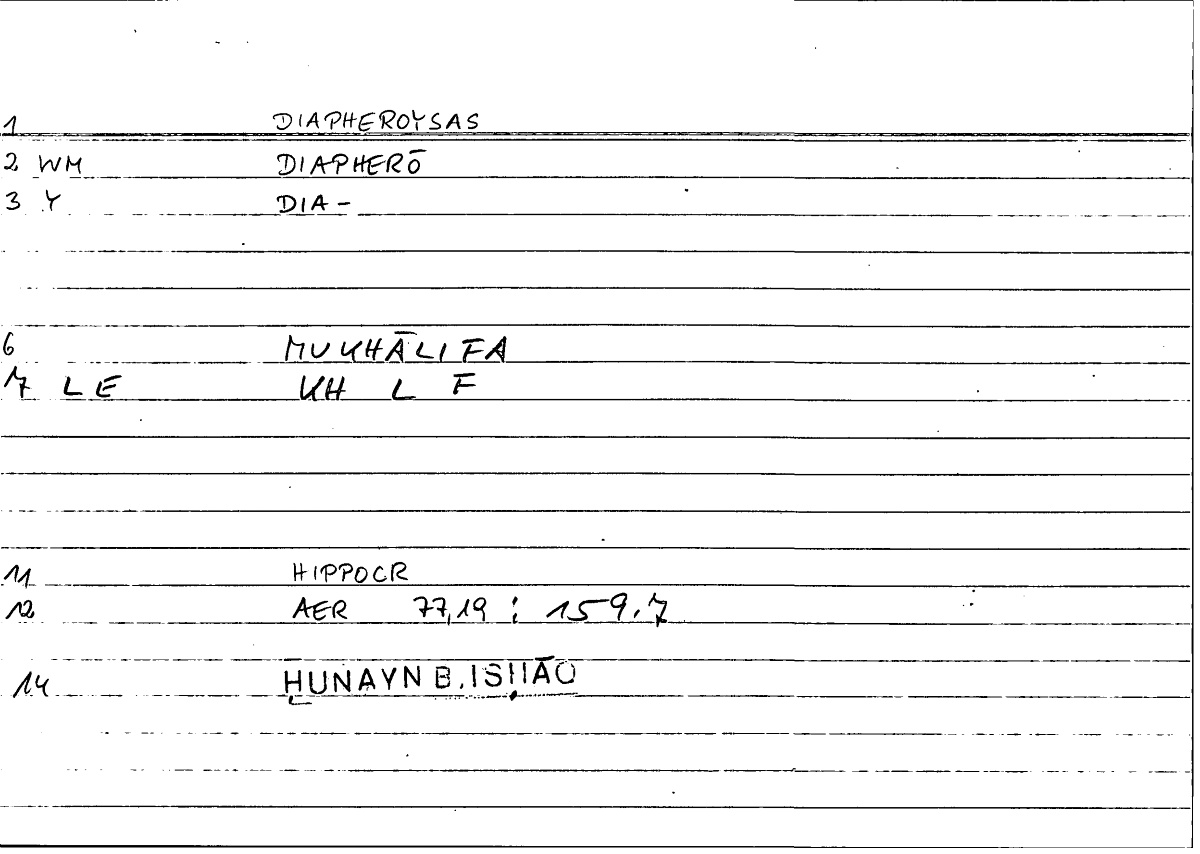 1 DIAPHEROYSAS
2 WM DIAPHERŌ
3 Y DIA-
6 MUKHĀLIFA
7 LE KH L F
11 HIPPOCR
12 AER 77,19 : 159.7
14 ḤUNAYN B. ISḤĀQ